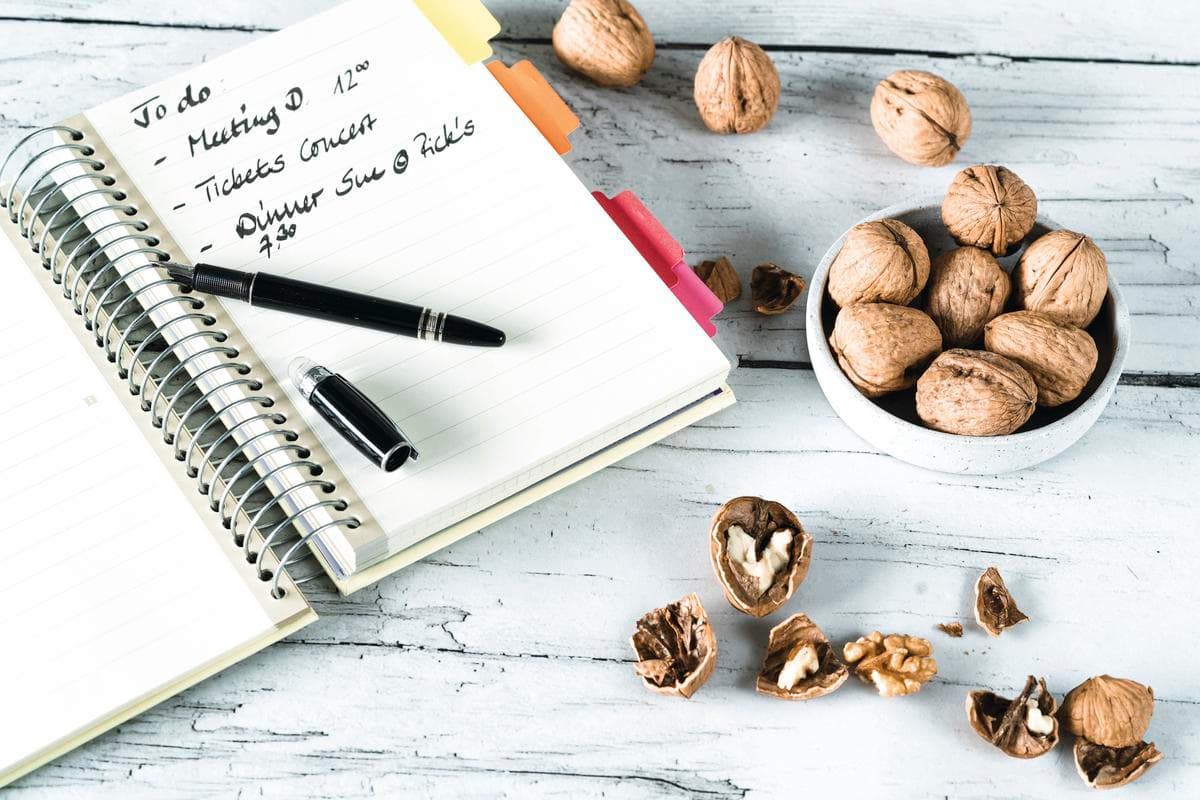 To do:
- Meeting D. 12⁰⁰
- Tickets Concert
- Dinner Sue @ Rick's
7.30